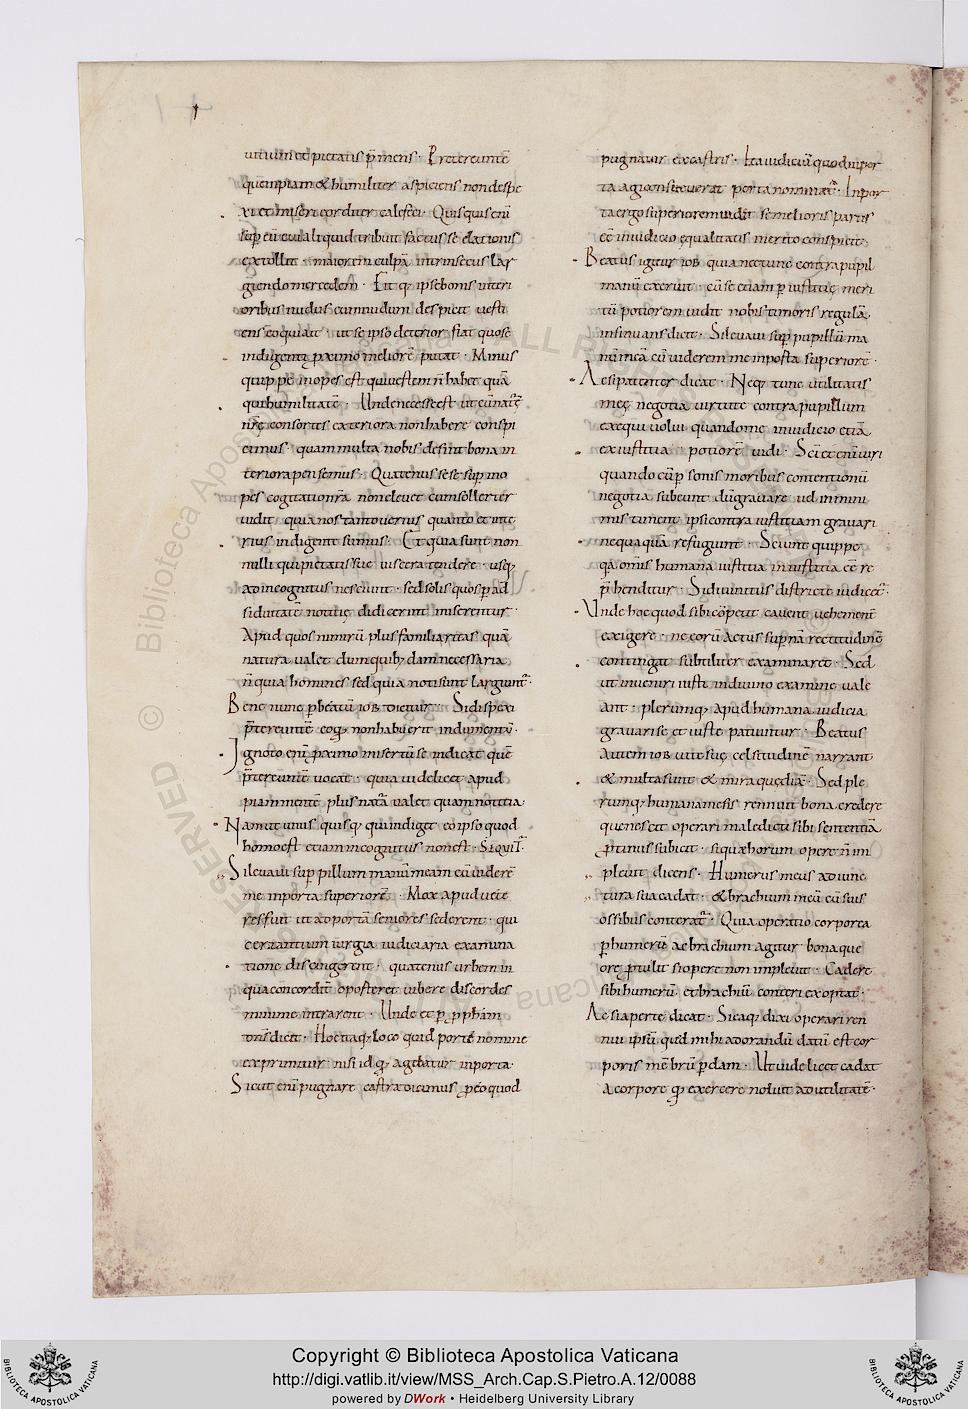 utrium et pietatis p̄mens· Pretereuntē
quempiam & humiliter aspiciens non despe
xi et misericorditer calefeci· Quisquis eni
sup eū cui aliquid tribuit factus se elationis
extollit· maiorem culpā intrinsecus lar
giendo mercedem· Fit q; ipse bonis interi
oribus nudus cum nudum despicit vesti
ens
indigenti proximo meliorē putat· Minus
quippe inops est qui vestem n̄ habet quā
qui humilitatē· Unde necesse est ut cū naturę
nrę consortes exteriora non habere conspi
cimus· quam multa nobis desint bona in
teriora pensemus· Quatenus sese sup ino
pes cogitatio nr̄a non elevet cum sollerter
vidit quia nos tanto verius quanto et inte
rius indigentes sumus· Et quia sunt non
nulli qui pietatis suę viscera tendere usq;
ad incognitos nesciunt· sed solis quos p ad
siduitatē notitię didicerint miserentur·
Apud quos nimirū plus familiaritas quā
natura valet dum quib;dam necessaria
n̄ quia homines sed quia noti sunt largiunt·
Bene nunc p beatū iob dicitur· Si dispexi
p̄tereuntē eo q; non habuerit indumentū·
Ignoto eni proximo misertū se indicat quē
p̄tereuntē vocat· quia videlicet apud
piam mentē plus natura valet quam notitia·
Nam et unus quisq; qui indiget eo ipso quod
homo est etiam incognitus non est· Siquit·
Si levavi sup pupillum manū meam cū viderē
me in porta superiorē· Mox apud vete
res fuit ut ad portā seniores sederent· qui
certantium iurgia iudiciaria examina
tione discingerent· quatenus urbem in
qua concorditer oporteret vivere discordes
minime intrarent· Unde et p p̄phām
dns dicit· Hoc itaq; loco quid portę nomine
exprimitur nisi id q; agebatur in porta·
Sicut eni pugnare castra dicimus p eo quod
pugnatur ex castris· Ita iudiciū quod in por
ta agi consueverat porta nominat· In por
ta ergo superiorem vidit se melioris partis
ēē in iudicio equalitatis merito conspicit·
Beatus igitur iob quia nec tunc contra pupil
manū exeruit· cū se etiam p iustitię meri
tū potiorem vidit nobis timoris regulā
insinuans dicit· Si levavi sup pupillū ma
nū meā cū viderem me in porta superiorē·
Ac si patenter dicat· Neq; tunc utilitatis
meę negotia virtute contra pupillum
exequi volui quando me in iudicio etiā
ex iustitia potiorē vidi· Sci et enim viri
quando cū p sonis moribus contentionū
negotia subeunt dū gravare vel in mini
mis timent ipsi contra iustitiam gravari
nequaquā refugiunt· Sciunt quippe
qā omis humana iustitia iniustitia ēē re
p̄henditur· Si divinitus districte iudicet·
Unde hoc quod sibi cōpetit cavent vehement
exigere· ne eorū actus supnā rectitudinē
contingat subtiliter examinaret· Sed
ut inveniri iusti in divino examine vale
ant· plerumq; apud humana iudicia
gravari se et iuste patiuntur· Beatus
autem iob vitę suę celsitudinē narrant
& multa sunt & mira quę dixit· Sed ple
rumq; humana mens rennuit bona credere
que nescit operari maledicti sibi sententiā
protinus subicit· si quę horum opere n̄ im
plevit dicens· Humerus meus a iunc
tura sua cadat· & brachium meū cū suis
ossibus conterat· Quia operatio corporea
p humerū ac brachium agitur· bona que
ore protulit si opere non implevit· Cadere
sibi humerū et brachiū conteri exoptat·
Ac si aperte dicat· Si ea q; dixi operari ren
nui ipsū quod mihi ad operandū datū est cor
poris mēbrū pdam· Ut videlicet cadat
a corpore q; exercere nolui ad utilitatē·
Copyright © Biblioteca Apostolica Vaticana
http://digi.vatlib.it/view/MSS_Arch.Cap.S.Pietro.A.12/0088
powered by DWork • Heidelberg University Library